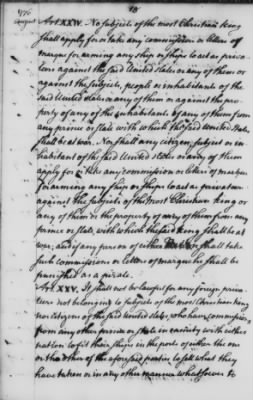 18
1776
August
Art. XXIV. No subjects of the most Christian king
shall apply for or take any commission or letters of
marque for arming any ship or ships to act as priva-
teers against the said United States or any of them or
against the subjects, people or inhabitants of the
said United States or any of them or against the pro-
perty of any of the inhabitants of any of them from
any prince or state with which the said United States
shall be at war. Nor shall any citizen, subject or in-
habitant of the said United States or any of them
apply for or take any commission or letters of marque
for arming any ship or ships to act as privateers
against the subjects of the Most Christian king or
any of them or the property of any of them from any
prince or state with which the said king shall be at
war; and if any person of either shall take
such commissions or letters of marque he shall be
punished as a pirate.
Art. XXV. It shall not be lawful for any foreign priva-
teers not belonging to subjects of the most Christian king
nor citizens of the said United States, who have commissions
from any other prince or state in enmity with either
nation to fit their ships in the ports of either the one
or the other of the aforesaid parties to sell what they
have taken or in any other manner whatsoever to